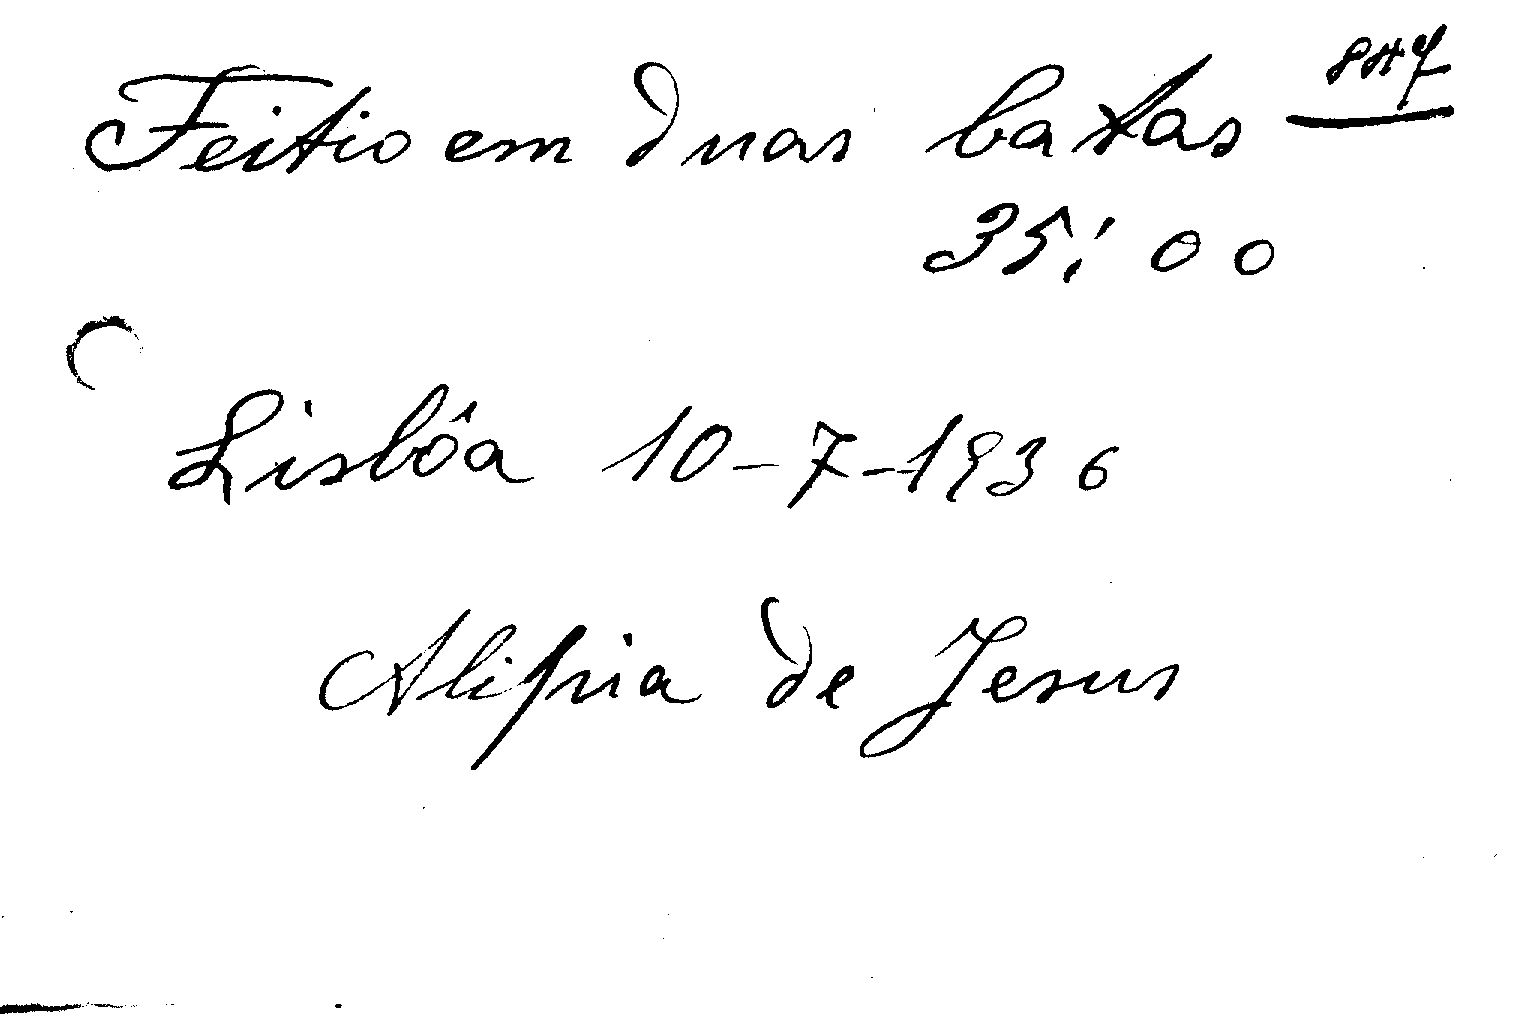 Feitio em duas batas
35:00
Lisbôa 10-7-1936
Alipia de Jesus